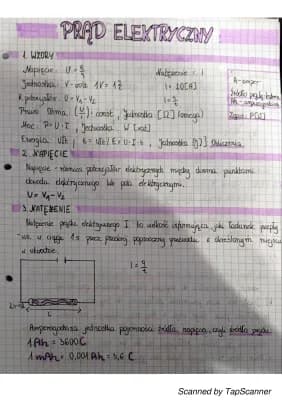 PRĄD ELEKTRYCZNY
1. WZORY
Napięcie: U = Natężenie: I
Jednostka: V - volt 1V = 1 I = 1C [A]
R. potencjałów: U = V₁ - V₂ I = q/t
A - amper
Prawo Ohma: const, Jednostka [Ω] (omega)
Moc: P = U · I, Jednostka W [wat]
Energia: E = U · I · t, Jednostka [J]
2. NAPIĘCIE
Napięcie - różnica potencjałów elektrycznych między dwoma punktami
obwodu elektrycznego lub pola elektrycznego.
U = V₁ - V₂
3. NATĘŻENIE
Natężenie prądu elektrycznego I to wielkość informująca, jaki ładunek przepły-
wa w ciągu 1s przez przekrój poprzeczny przewodu w określonym miejscu
w obwodzie.
I = q/t
L
Amperogodzina: jednostka pojemności źródła napięcia, czyli źródła prądu.
1 Ah = 3600 C
1 mAh = 0,001 Ah = 3,6 C
Scanned by TapScanner